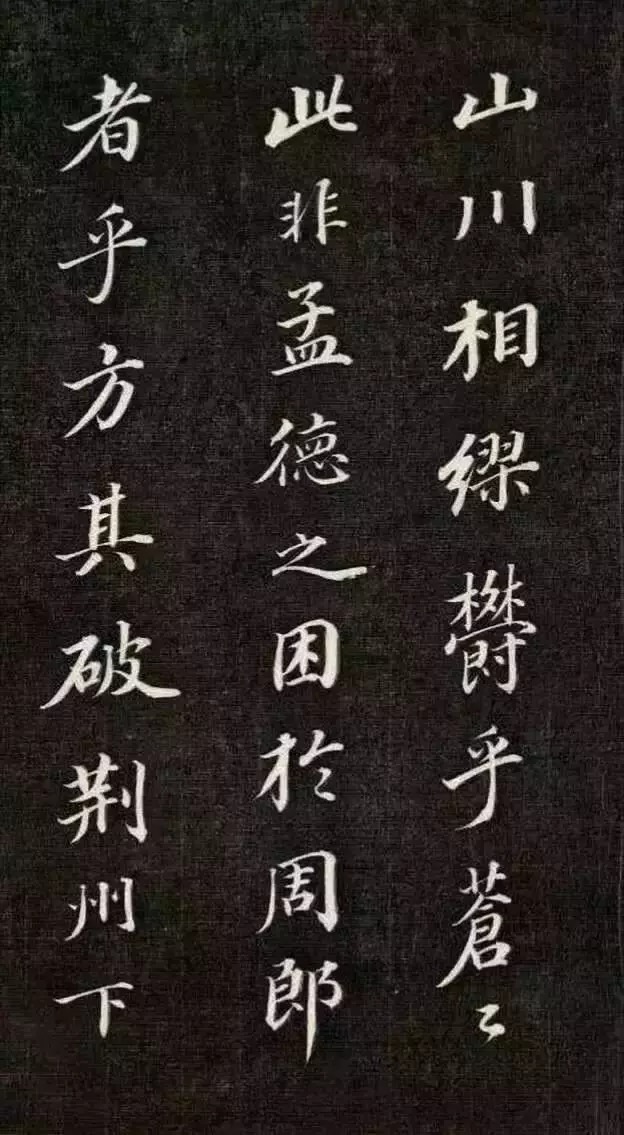 山川相繆欝乎蒼〻
此非孟德之困於周郎
者乎方其破荆州下